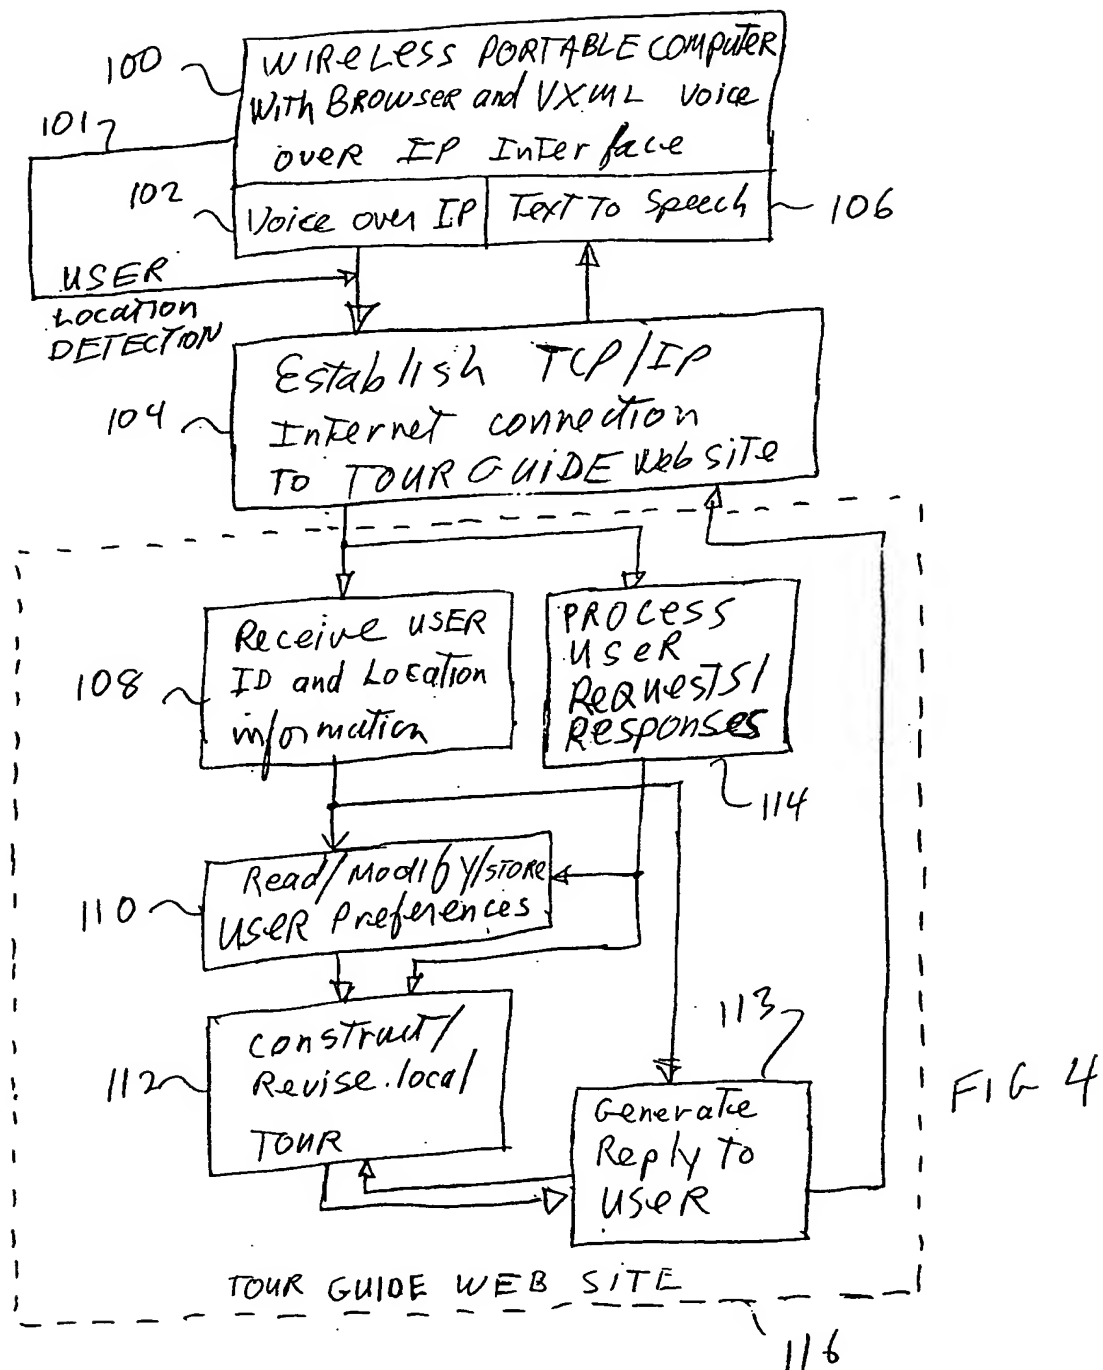 100
WIRELESS PORTABLE COMPUTER
With BROWSER and VXML Voice
over IP Interface
101
102
Voice over IP
Text To Speech
106
USER
Location
DETECTION
104
Establish TCP/IP
Internet connection
To TOUR GUIDE Web site
Receive USER
ID and Location
information
108
PROCESS
USER
Requests/
Responses
114
Read/Modify/STORE
USER Preferences
110
Construct/
Revise local
TOUR
112
113
Generate
Reply To
USER
FIG 4
TOUR GUIDE WEB SITE
116